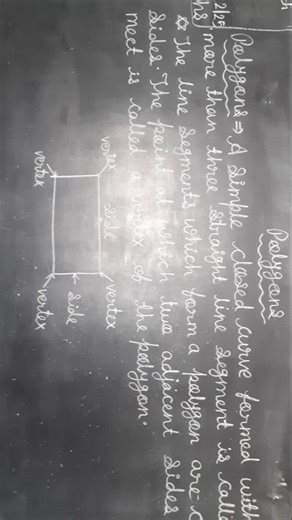 Polygons
2/25
Polygons ⇒ A simple closed curve formed with
more than three straight line segment is
The line segments which form a polygon are
sides. The point at which two adjacent sides
meet is called a vertex of the polygon.
vertex
vertex
side
side
vertex
vertex